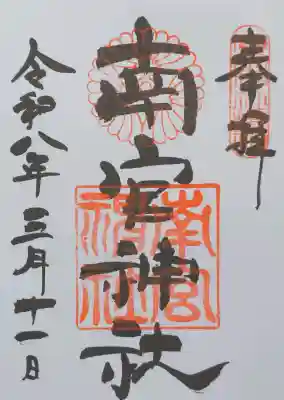 奉拝
南宮神社
南宮神社
令和八年三月十一日